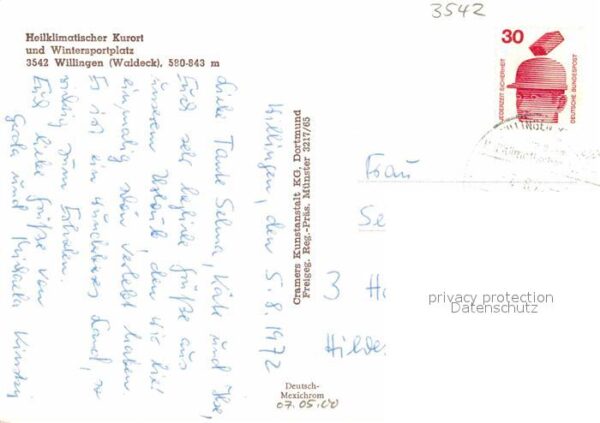 3542
Heilklimatischer Kurort
und Wintersportplatz
3542 Willingen (Waldeck), 580-843 m
Willingen, den 5.8.1972
Liebe Tante Selma, Käte und Ihr,
Euch sehr herzliche Grüße aus
unserem Urlaub den wir hier
einmalig schön verlebt haben.
Es ist ein wunderbares Land, so
richtig zum Erholen.
Euch liebe Grüße von
Gerda und Michaela
Cramers Kunstanstalt KG, Dortmund
Freigeg. Reg.-Präs. Münster 3217/65
30
JEDERZEIT SICHERHEIT
DEUTSCHE BUNDESPOST
Frau
Se
3 H
Hilde
privacy protection
Datenschutz
Deutsch-
Mexichrom
07.05.00